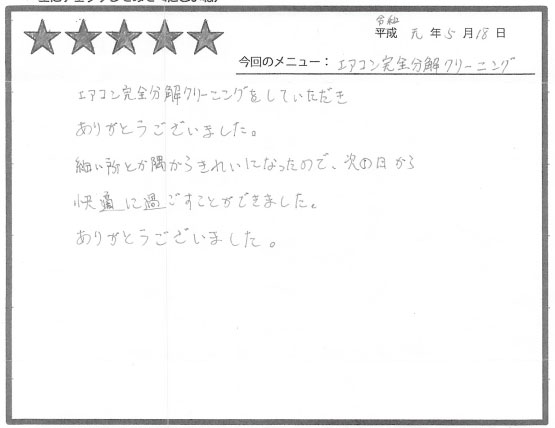 令和
平成 元 年 5 月 18 日
今回のメニュー: エアコン完全分解クリーニング
エアコン完全分解クリーニングをしていただき
ありがとうございました。
細い所とか隅からきれいになったので、次の日から
快適に過ごすことができました。
ありがとうございました。